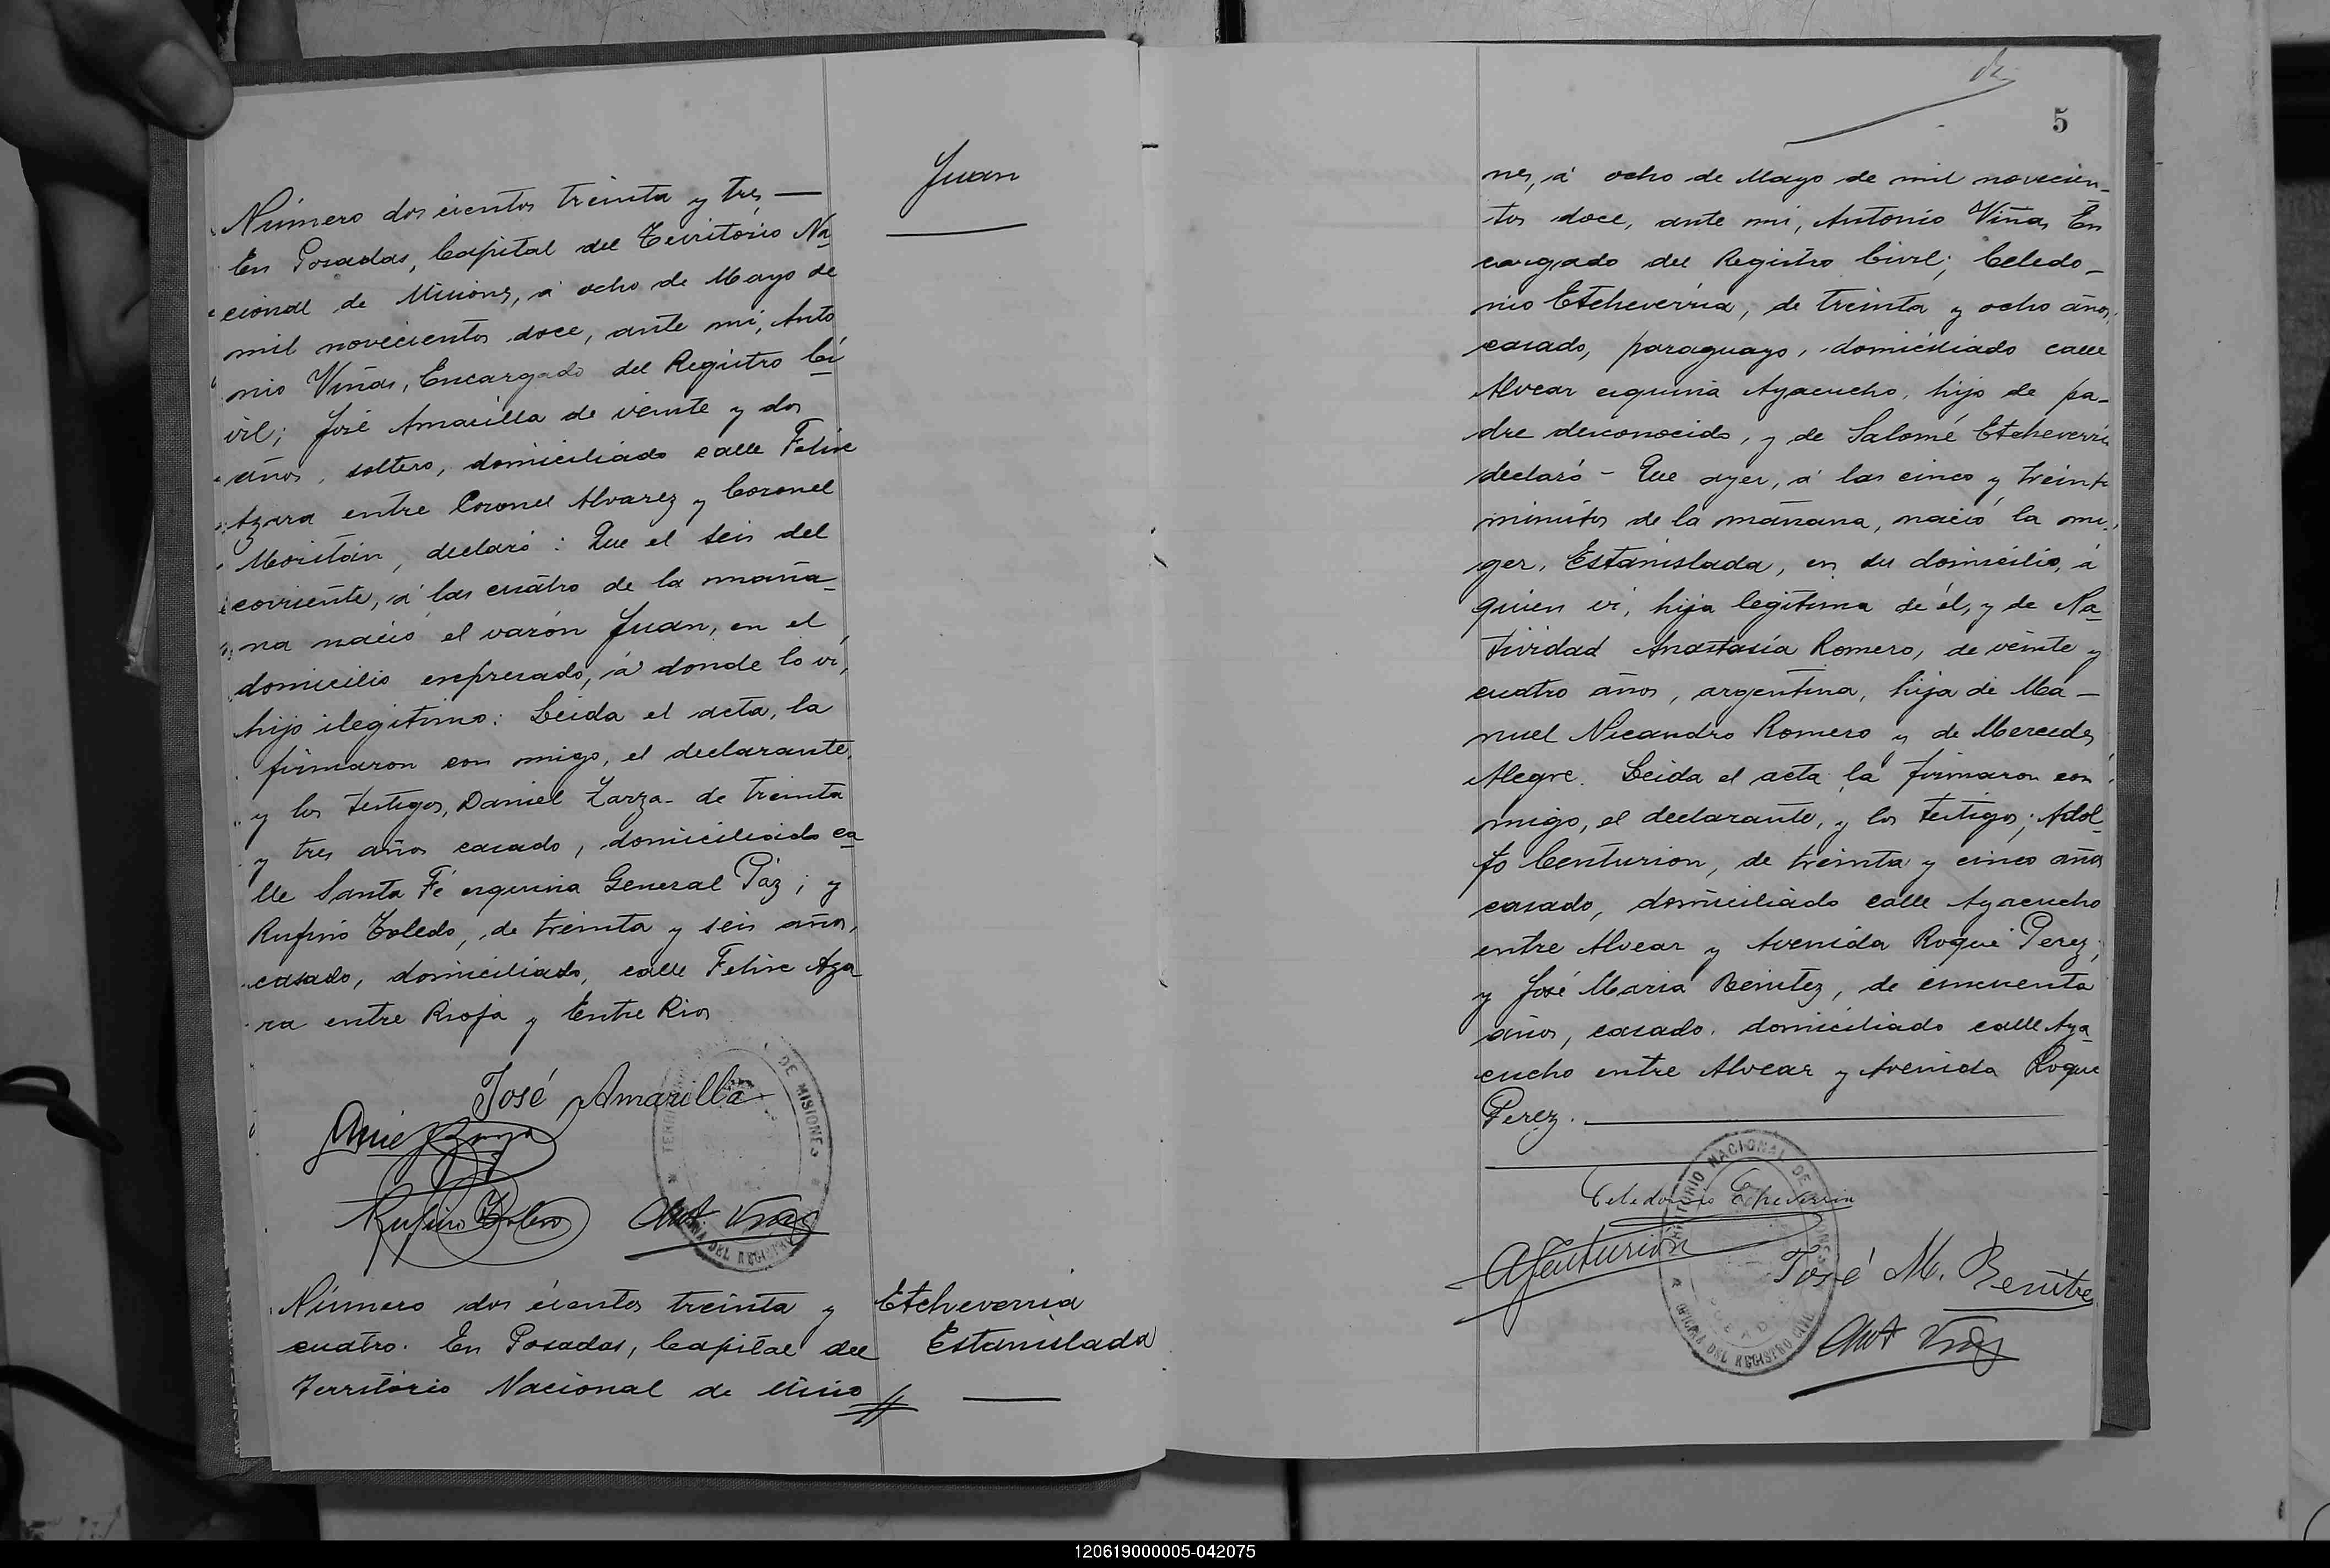 Número dos cientos treinta y tres —
En Posadas, Capital del Territorio Na
cional de Misiones, á ocho de Mayo de
mil novecientos doce, ante mi, Anto
nio Viñas, Encargado del Registro Ci
vil; José Amarilla de veinte y dos
años, soltero, domiciliado calle Felix
Azara entre Coronel Alvarez y Coronel
declaró: Que el seis del
corriente, á las cuatro de la maña
na nació el varón Juan, en el
domicilio expresado, á donde lo vi,
hijo ilegitimo: Leida el acta, la
firmaron con migo, el declarante,
y los testigos, Daniel Zarza de treinta
y tres años casado, domiciliado ca
lle Santa Fé esquina General Paz; y
Rufino Toledo, de treinta y seis años,
casado, domiciliado, calle Felix Aza
ra entre Rioja y Entre Rios
José Amarilla
Rufino Toledo
Ant. Viñas
TERRITORIO DE MISIONES
OFICINA DEL REGISTRO
Juan
Número dos cientos treinta y
cuatro. En Posadas, Capital del
Territorio Nacional de Misio
Etcheverria
Estanislada
5
nes, á ocho de Mayo de mil novecien-
tos doce, ante mi, Antonio Viñas En
cargado del Registro Civil; Celedo-
nio Etcheverria, de treinta y ocho años,
casado, paraguayo, domiciliado calle
Alvear esquina Ayacucho, hijo de pa-
dre desconocido, y de Salomé Etcheverria
declaró - Que ayer, á las cinco y treinta
minutos de la mañana, nació la mu-
ger, Estanislada, en su domicilio, á
quien vi, hija legitima de él, y de Na
tividad Anastasia Romero, de veinte y
cuatro años, argentina, hija de Ma-
nuel Nicandro Romero y de Mercedes
Alegre. Leida el acta la firmaron con
migo, el declarante, y los testigos; Adol-
fo Centurion, de treinta y cinco años
casado, domiciliado calle Ayacucho
entre Alvear y Avenida Roque Perez;
y José Maria Benitez, de cincuenta
años, casado, domiciliado calle Aya
cucho entre Alvear y Avenida Roque
Perez.
Celedonio Echeverria
A Centurion
José M. Benitez
Ant Viñas
TERRITORIO NACIONAL DE MISIONES
OFICINA DEL REGISTRO CIVIL
120619000005-042075